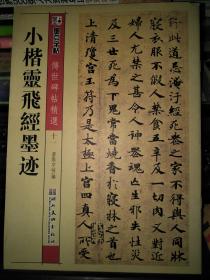 此道忌淹汙經死喪之家與人同牀
寢衣服不假人禁食五辛及一切肉又對近
婦人尤禁之甚令人神喪魂亡生邪失性災
及三世死為下鬼常當燒香於寢牀之首也
上清瓊宮玉符乃是太極上宮四真人所受
墨点字帖
傳世碑帖精選
十
小楷靈飛經墨迹